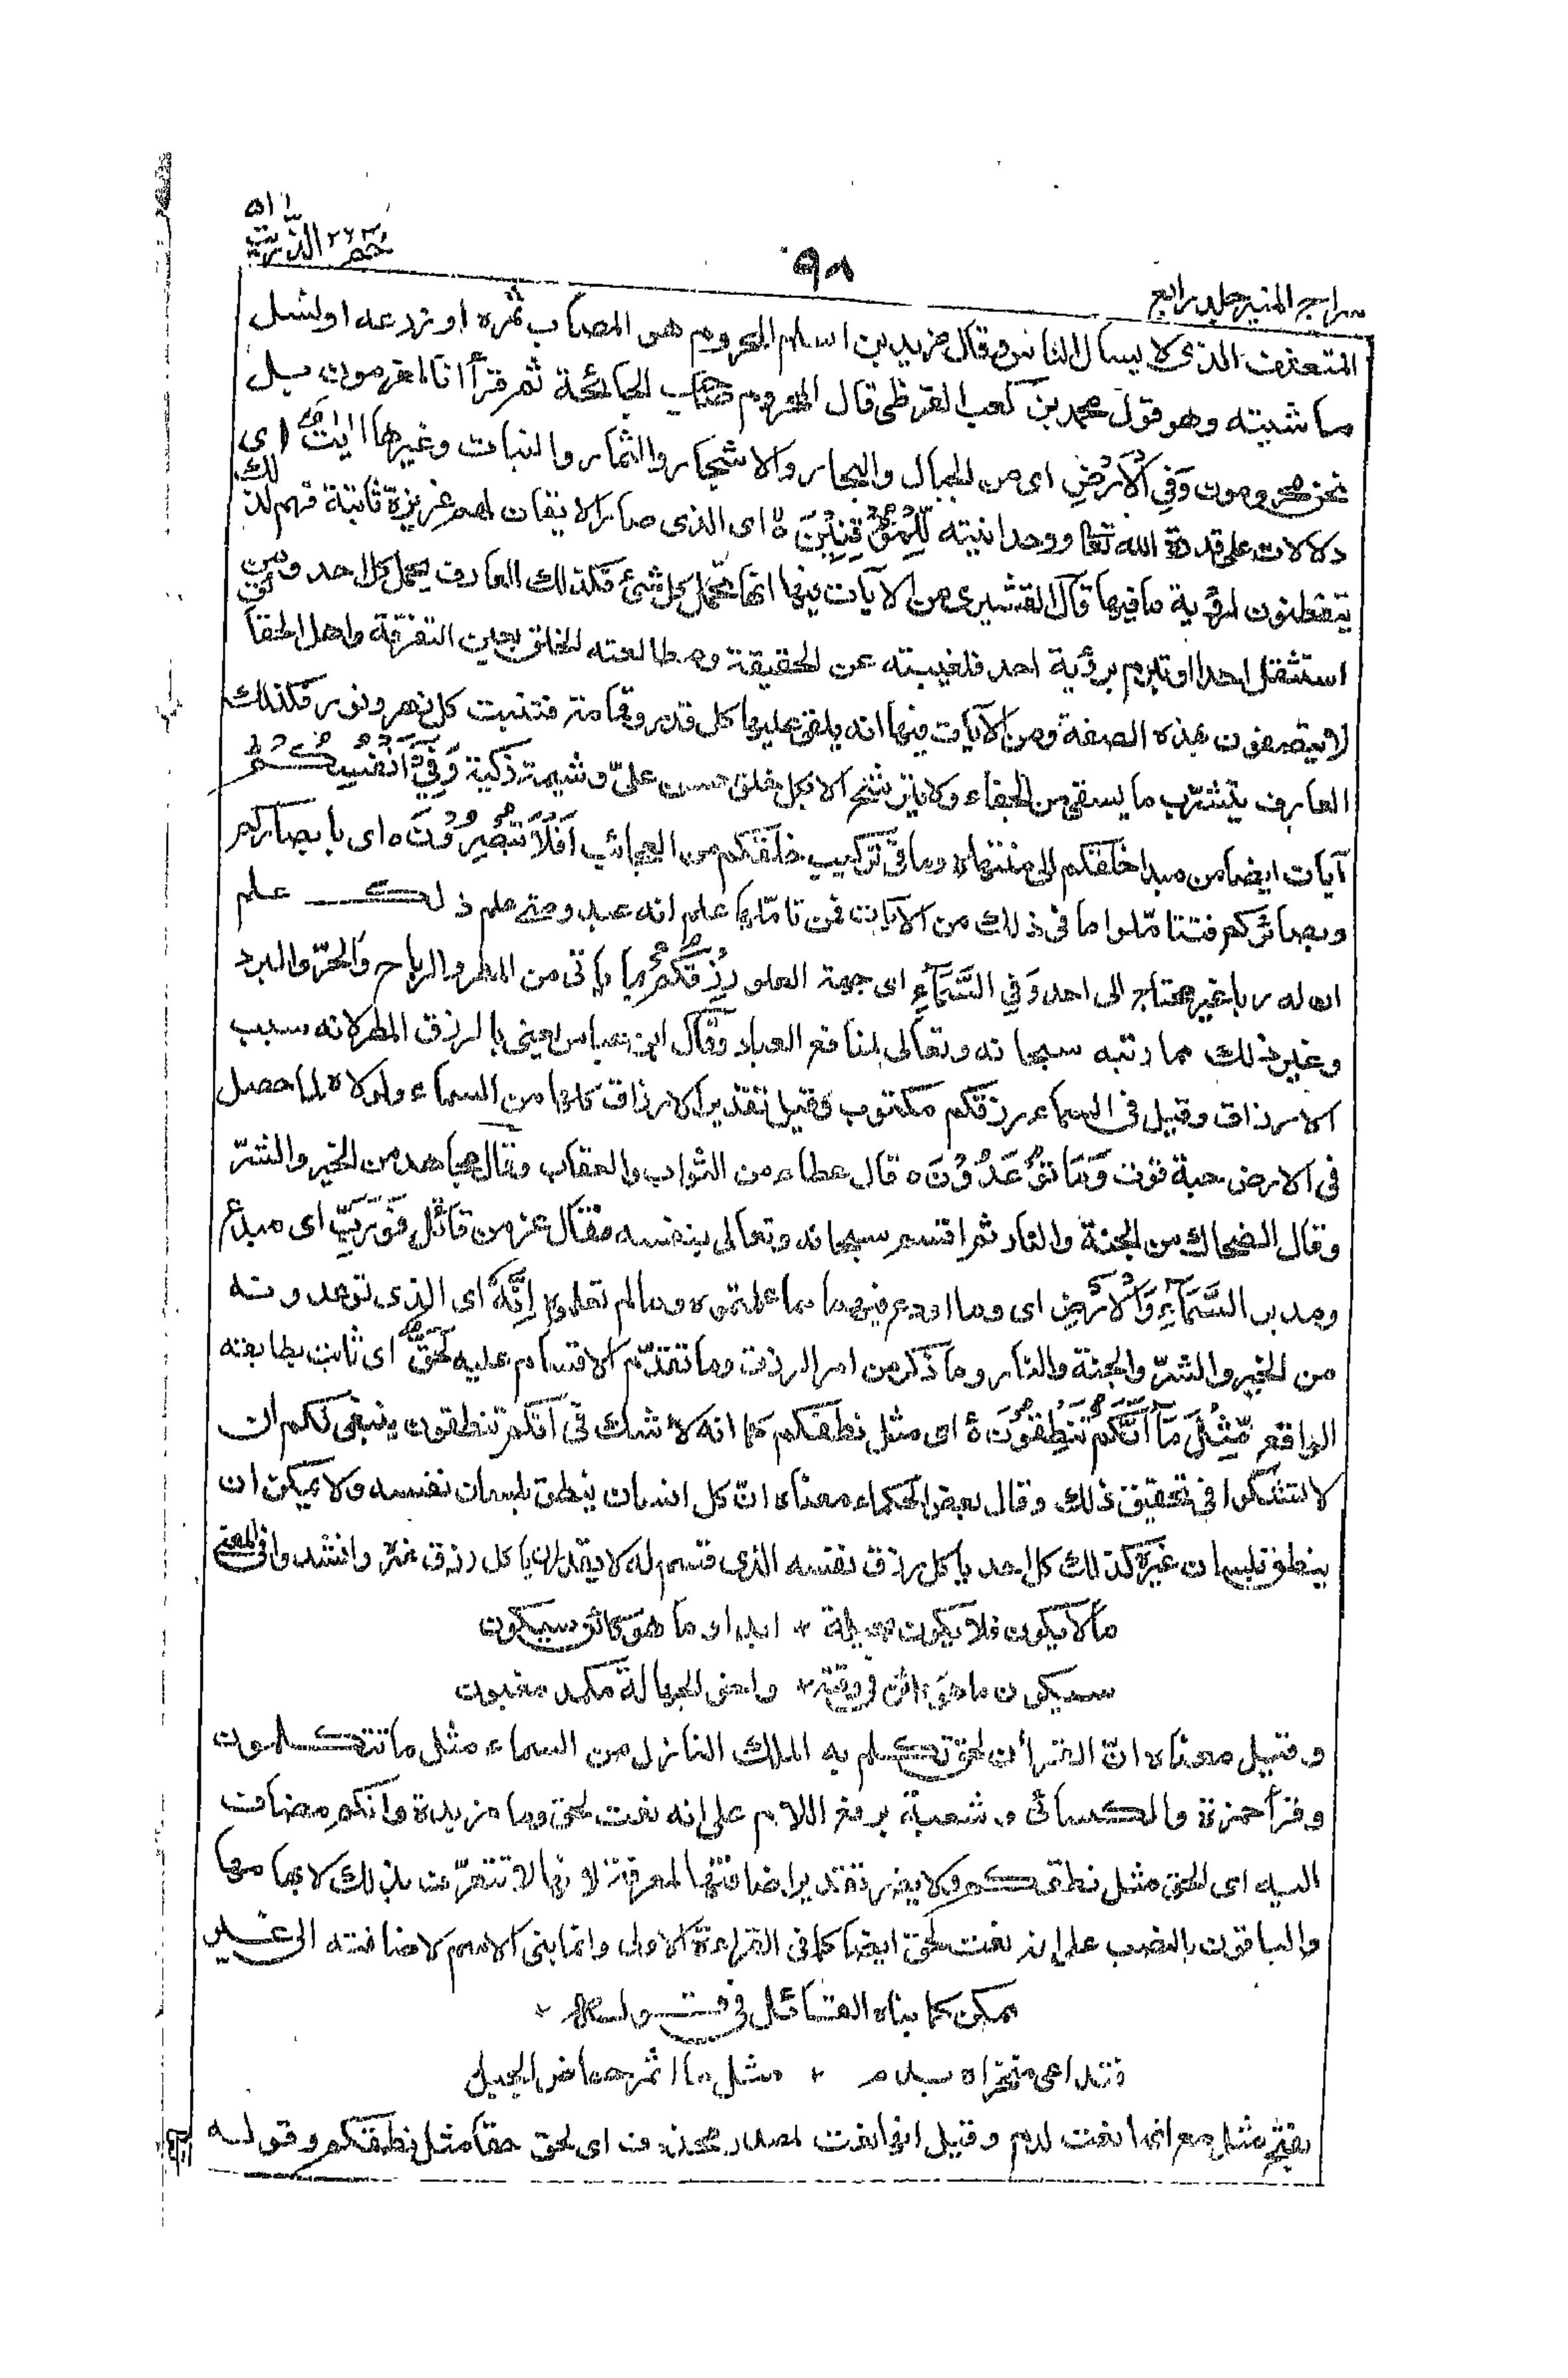 سراج المنير جلد رابع
٩٨
حم ٢٦ الذّٰريٰت ٥١
المتعفف الذى لا يسأل الناس وقال زيد بن اسلم المحروم هو المصاب ثمره او زرعه او نسل
ماشيته وهو قول محمد بن كعب القرظى قال المحروم صاحب الجائحة ثم قرأ انا لمغرمون بل
نحن محرومون وَفِي الْاَرْضِ اى من الجبال والبحار والاشجار والثمار والنبات وغيرها اٰيٰتٌ اى
دلالات على قدرة الله تعا ووحدانيته لِّلْمُوْقِنِيْنَ ہ اى الذى صار الايقان لهم غريزة ثابتة فهم لذلك
يتفطنون لرؤية ما فيها قال القشيرى من الآيات فيها انها تحمل كل شئ فكذلك العارف يحمل كل احد ومن
استثقل احدا او تبرم برؤية احد فلغيبته عن الحقيقة ومطالعته الخلق بعين التفرقة واهل الحقائق
لا يتصفون بهذه الصفة ومن الآيات فيها انه يلقى عليها كل قذر وقمامة فتنبت كل زهر ونور فكذلك
العارف يتشرّب ما يسقى من الجفاء ولا يترشح الا بكل خلق حسن علىّ وشيمة زكية وَفِيْۤ اَنْفُسِكُمْ
آيات ايضا من مبدا خلقكم الى منتهاه وما فى تركيب خلقكم من العجائب اَفَلَا تُبْصِرُوْنَ ہ اى بابصاركم
وبصائركم فتتأمّلوا ما فى ذلك من الآيات فمن تأمّلها علم انه عبد ومتى علم ذلك علم
ان له ربا غير محتاج الى احد وَفِي السَّمَآءِ اى جهة العلو رِزْقُكُمْ بما يأتى من المطر والرياح والحرّ والبرد
وغير ذلك مما رتبه سبحانه وتعالى لمنافع العباد وقال ابن عباس يعنى بالرزق المطر لانه سبب
الارزاق وقيل فى السماء رزقكم مكتوب وقيل تقدير الارزاق كلها من السماء ولولاه لما حصل
فى الارض حبة قوت وَمَا تُوْعَدُوْنَ ہ قال عطاء من الثواب والعقاب وقال مجاهد من الخير والشرّ
وقال الضحاك من الجنة والنار ثم اقسم سبحانه وتعالى بنفسه فقال عز من قائل فَوَرَبِّ اى مبدع
ومدبر السَّمَآءِ وَالْاَرْضِ اى وما اودع فيهما مما علمتموه وما لم تعلموه اِنَّهٗ اى الذى توعدونه
من الخير والشرّ والجنة والنار وما ذكر من امر الرزق وما تقدّم الاقسام عليه لَحَقٌّ اى ثابت يطابقه
الواقع مِّثْلَ مَاۤ اَنَّكُمْ تَنْطِقُوْنَ ہ اى مثل نطقكم كما انه لا شك فى انكم تنطقون ينبغى لكم ان
لا تشكوا فى تحقيق ذلك وقال بعض الحكماء معناه انّ كل انسان ينطق بلسان نفسه ولا يمكن ان
ينطق بلسان غيره كذلك كل احد يأكل رزق نفسه الذى قسم له لا يقدر ان يأكل رزق غيره وانشدوا فى المعنى
ما لا يكون فلا يكون بحيلة + ابدا وما هو كائن سيكون
سيكون ما هو كائن فى وقته + واخو الجهالة مكمد مغبون
وقيل معناه انّ القرأن لحق تكلم به الملك النازل من السماء مثل ما تتكلمون
وقرأ حمزة والكسائى وشعبة برفع اللام على انه نعت لحق وما مزيدة وانكم مضاف
اليه اى لحق مثل نطقكم ولا يضر تقدير اضافتها لمعرفة لانها لا تتعرّف بذلك لابهامها
والباقون بالنصب على انه نعت لحق ايضا كما فى القراءة الاولى وانما بنى الاسم لاضافته الى غير
ممكن كما بناه القائل فى قوله +
فتداعى منخراه بدم + مثل ما اثمر حماض الجبل
بفتح مثل مع انها نعت لدم وقيل انها نعت لمصدر محذوف اى لحق حقا مثل نطقكم وقوله